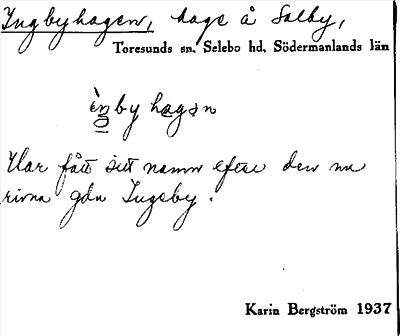 Ingbyhagen, hage å Solby,
Toresunds sn, Selebo hd, Södermanlands län
byhagan
Har fått sitt namn efter den nu
rivna gdn Ingeby.
Karin Bergström 1937